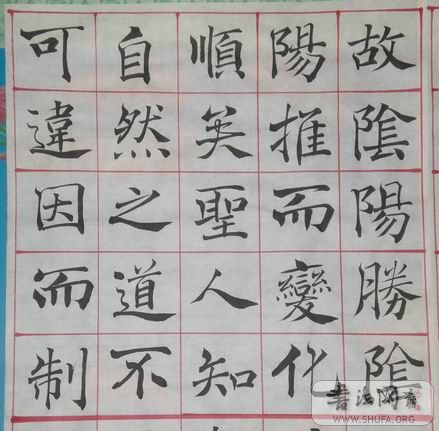 故陰陽勝陰
陽推而變化
順矣聖人知
自然之道不
可違因而制
WWW.SHUFA.ORG